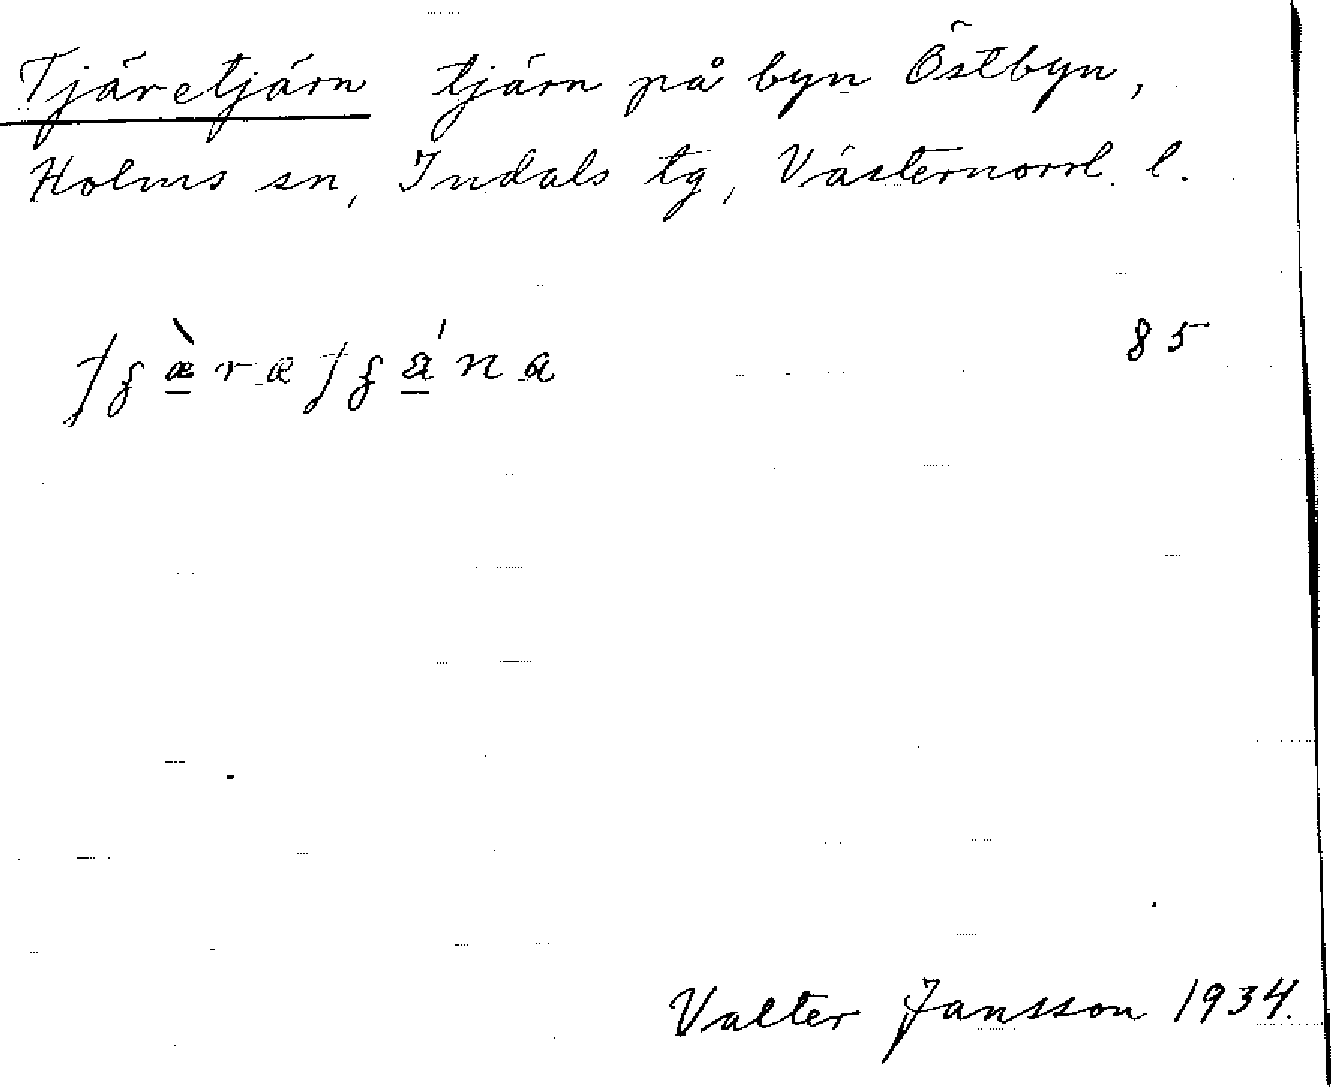 Tjäretjärn tjärn på byn Östbyn,
Holms sn, Indals tg, Västernorrl. l.
85
Valter Jansson 1934.